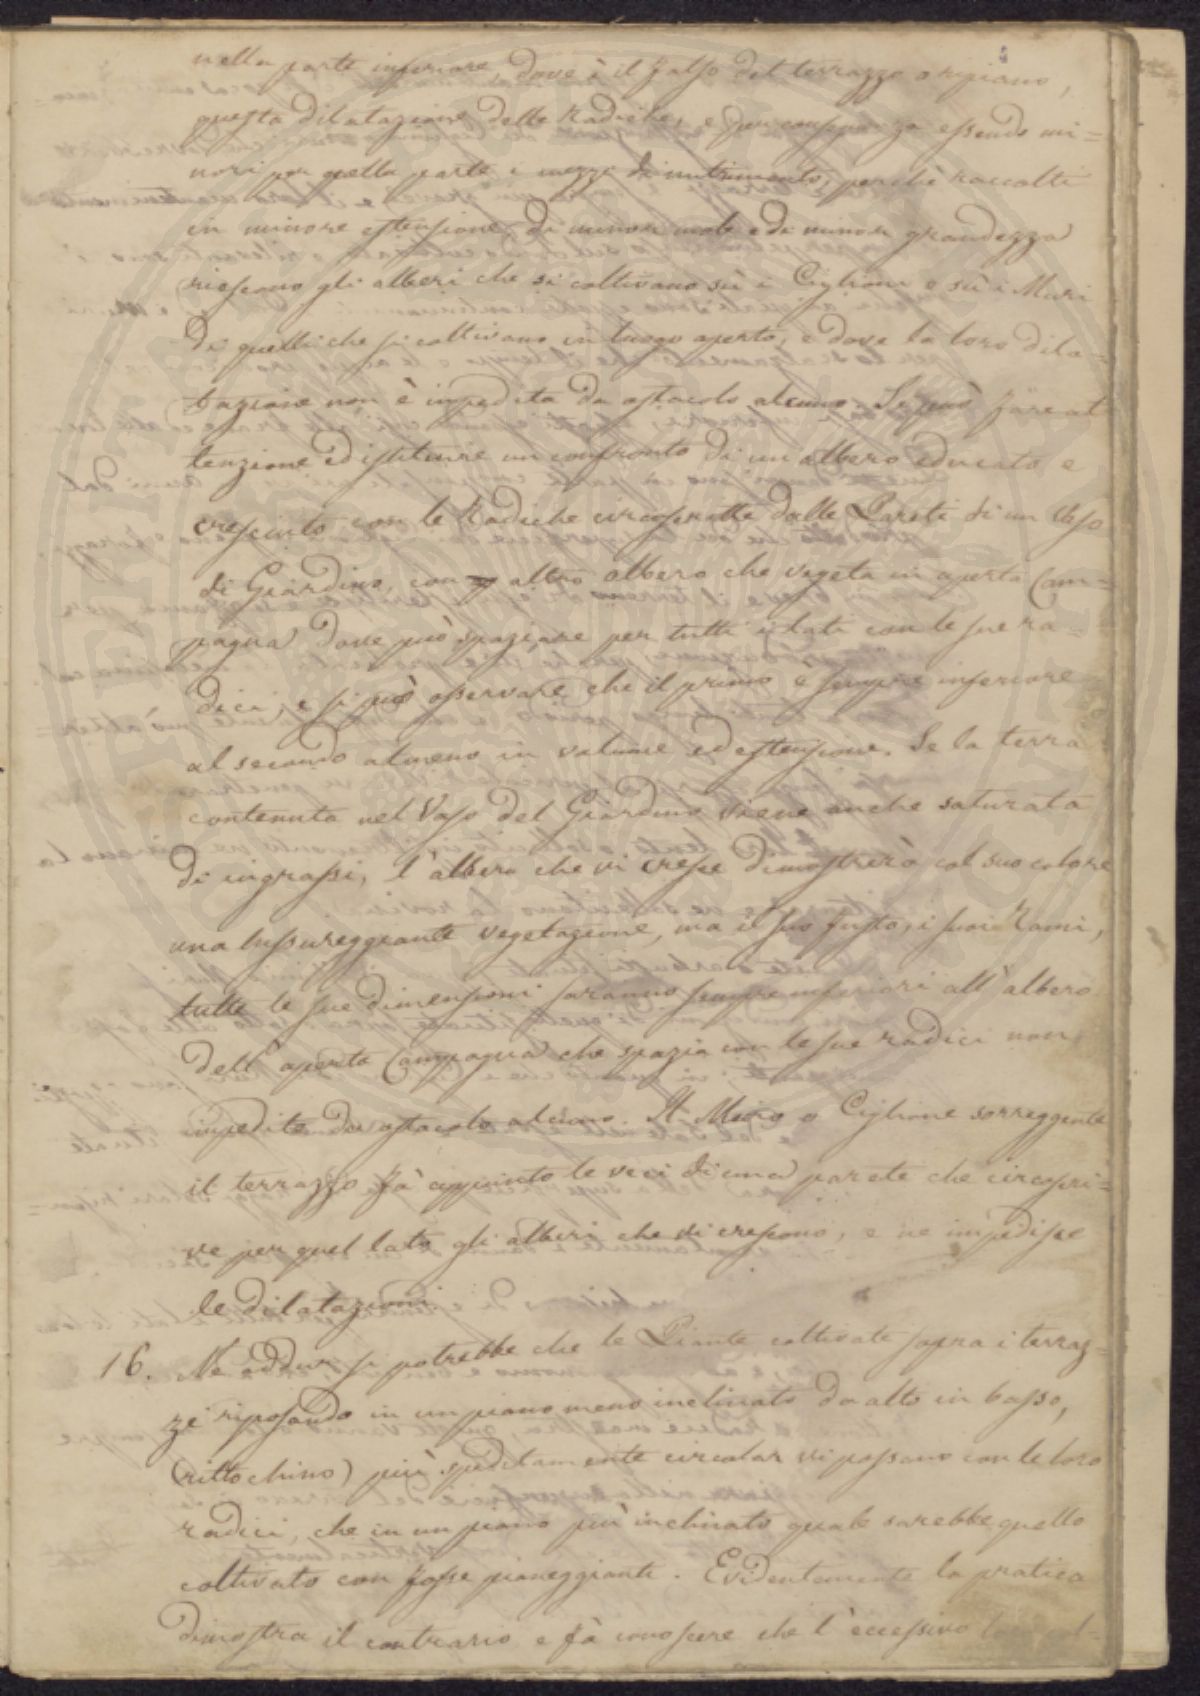 nella parte inferiore, dove è il falso del terrazzo o ripiano,
questa dilatazione delle Radiche, e per conseguenza essendo mi=
nori per quella parte i mezzi di nutrimento, perchè raccolti
in minore estensione, di minor mole e di minor grandezza
riescono gli alberi che si coltivano sù i Ciglioni e sù i Muri
di quelli che si coltivano in luogo aperto, e dove la loro dila=
tazione non è impedita da ostacolo alcuno. Si può fare at
tenzione ed istituire un confronto di un albero educato e
cresciuto con le Radiche circoscritte dalle Pareti di un Vaso
di Giardino, con altro albero che vegeta in aperta Cam=
pagna dove può spaziare per tutti i lati con le sue ra=
dici, e si può osservare che il primo è sempre inferiore
al secondo almeno in volume ed estensione. Se la terra
contenuta nel Vaso del Giardino viene anche saturata
di ingrassi, l'albero che vi cresce dimostrerà col suo colore
una lussureggiante vegetazione, ma il suo fusto, i suoi Rami,
tutte le sue dimensioni saranno sempre inferiori all'albero
dell'aperta Campagna che spazia con le sue radici non
impedite da ostacolo alcuno. Il Muro o Ciglione sorreggente
il terrazzo fà appunto le veci di una parete che circoscri=
ve per quel lato gli alberi che vi crescono, e ne impedisce
le dilatazioni.
16. Ne addur si potrebbe che le Piante coltivate sopra i terraz=
zi riposando in un piano meno inclinato da alto in basso,
(rittochino) più speditamente circolar vi possano con le loro
radici, che in un piano più inclinato quale sarebbe quello
coltivato con fosse pianeggianti. Evidentemente la pratica
dimostra il contrario e fà conoscere che l'eccessivo